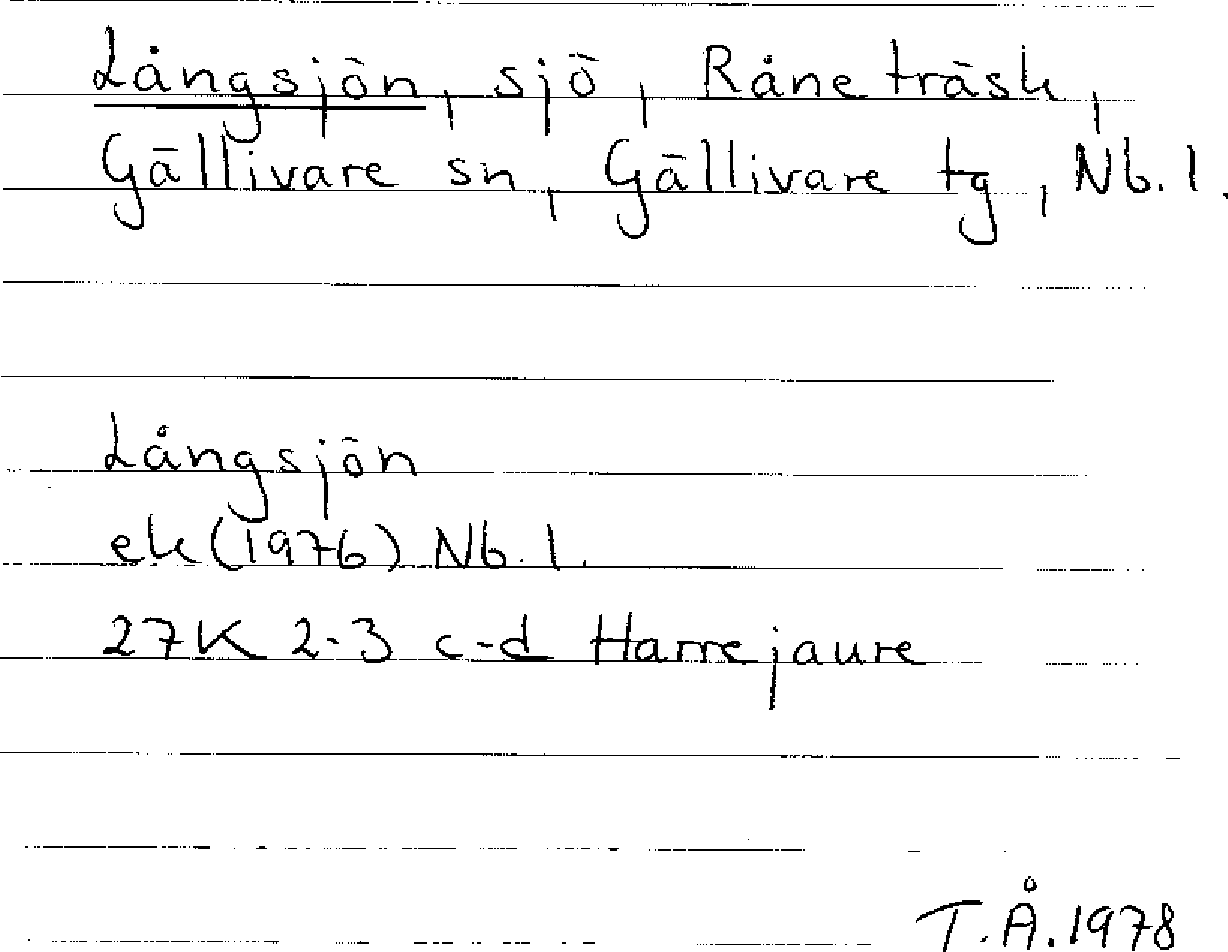 Långsjön, sjö, Råneträsk,
Gällivare sn, Gällivare tg, Nb. l.
Långsjön
ek (1976) Nb. l.
27K 2-3 c-d Harrejaure
T.Å. 1978